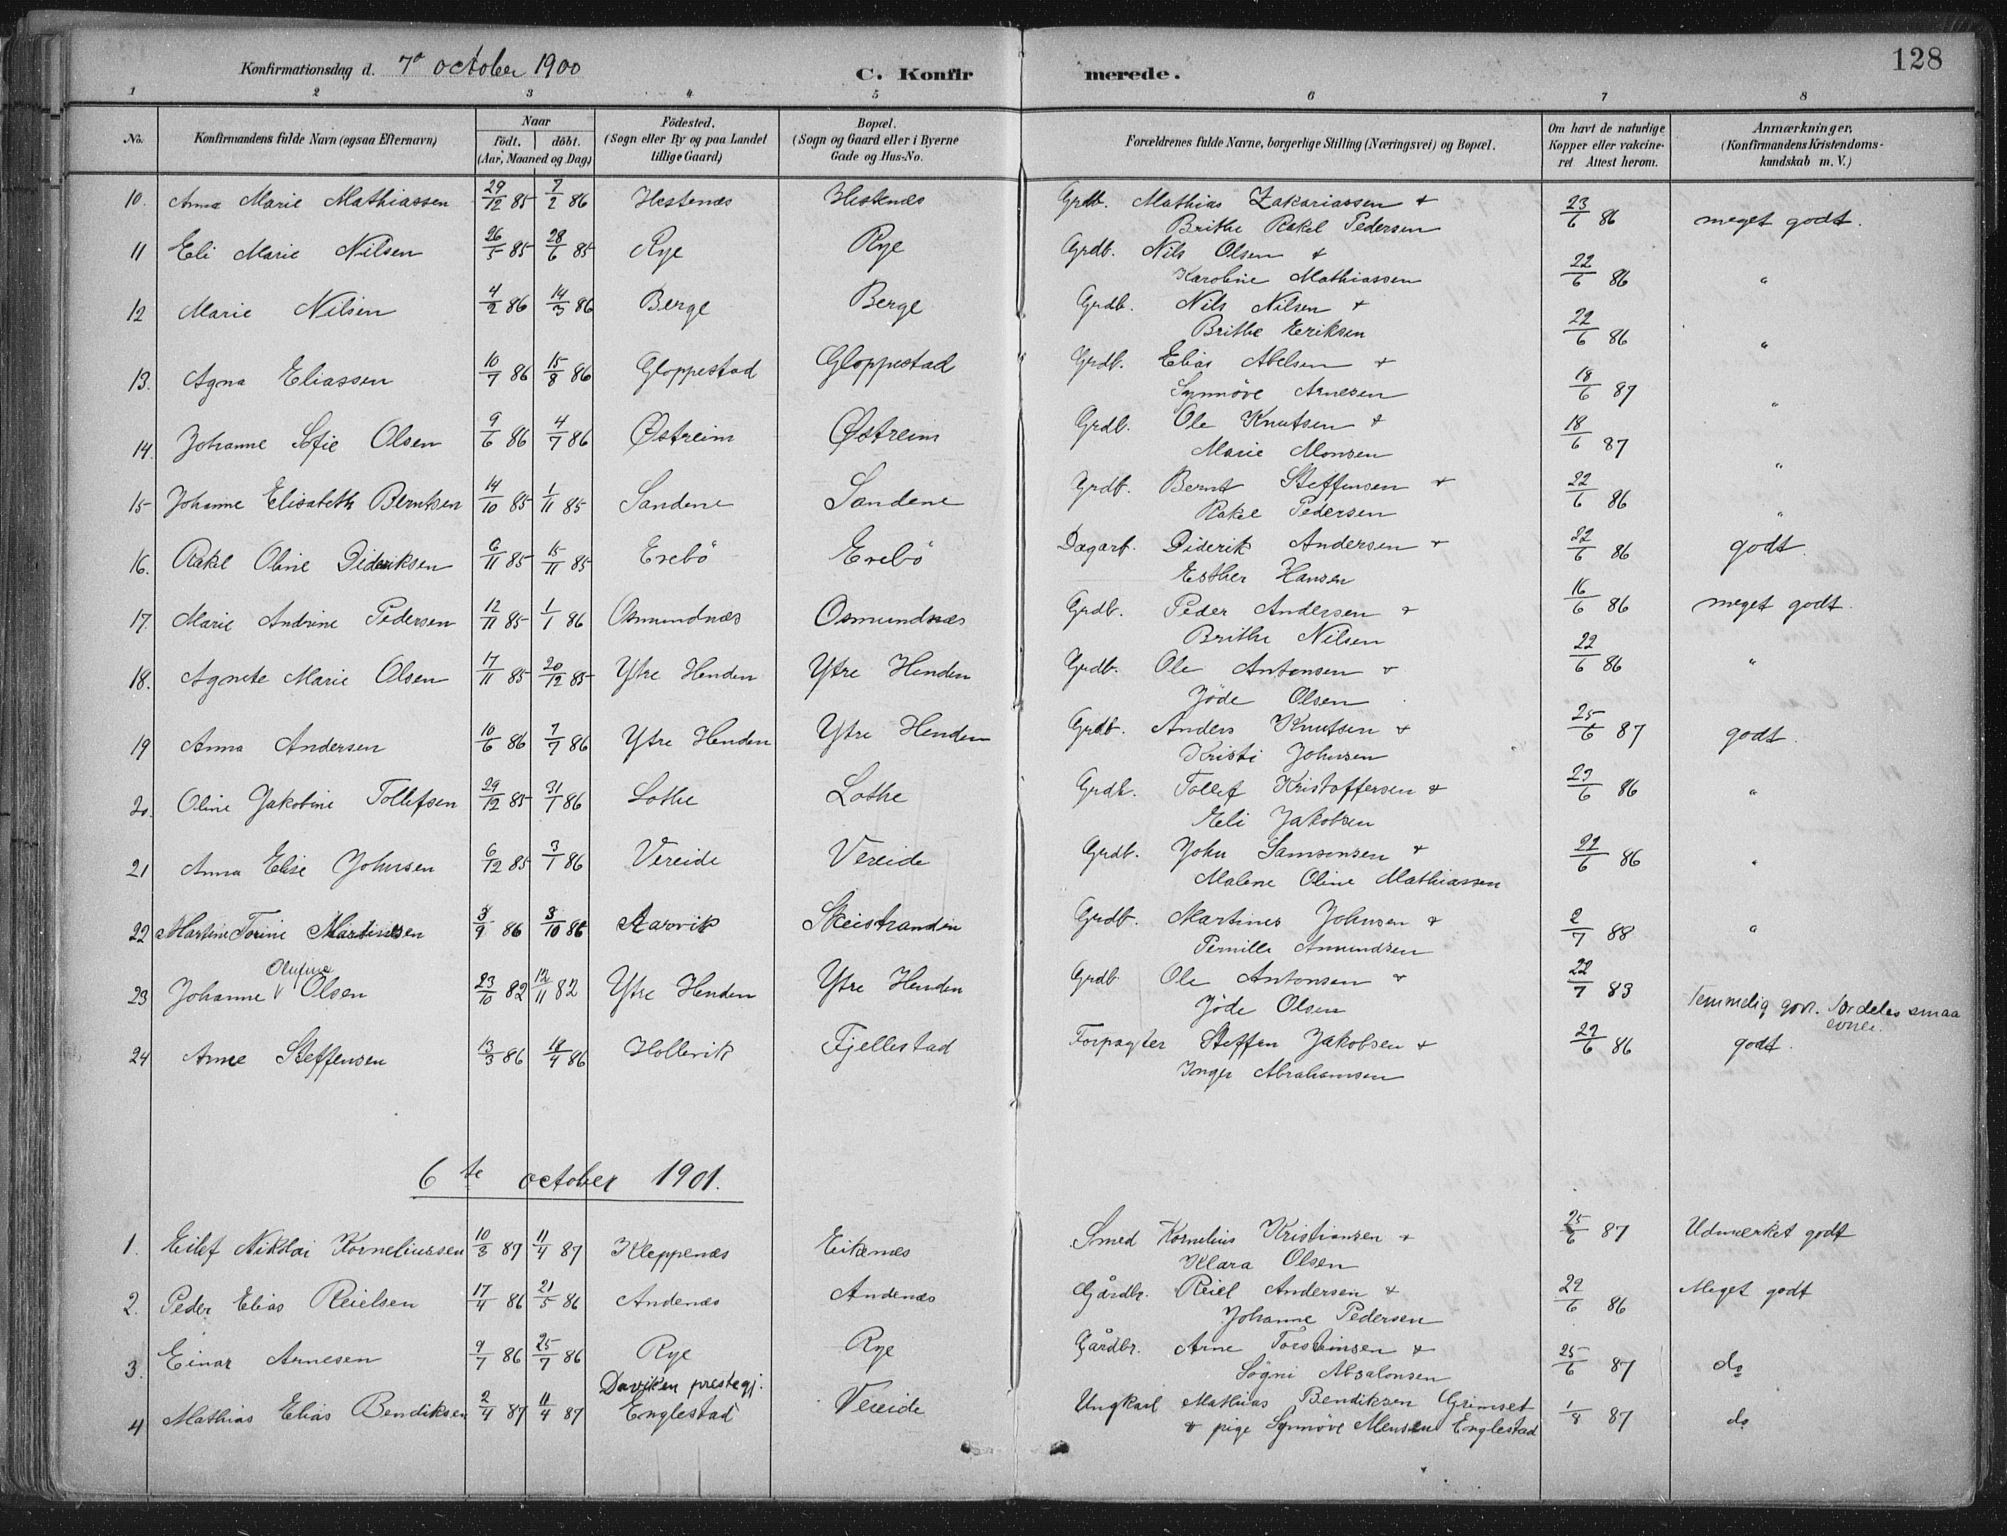 128
Konfirmationsdag d. 7de october 1900
C. Konfirmerede.
1 2 3 4 5 6 7 8
No. | Konfirmandens fulde Navn (ogsaa Efternavn) | Naar födt. döbt. (Aar, Maaned og Dag) | Födested. (Sogn eller By og paa Landet tillige Gaard) | Bopæl. (Sogn og Gaard eller i Byerne Gade og Hus-No. | Forældrenes fulde Navne, borgerlige Stilling (Næringsvei) og Bopæl. | Om havt de naturlige Kopper eller vakcineret Attest herom. | Anmærkninger, (Konfirmandens Kristendomskundskab m. V.)
10. Anna Marie Mathiassen 29/12 85 7/2 86 Hestenæs Hestenæs Grdb. Mathias Zakariassen + 23/6 86 meget godt.
Brithe Rakel Pedersen
11 Eli Marie Nilsen 26/5 85 28/6 85 Rye Rye Grdb. Nils Olsen + 22/6 86 "
Karoline Mathiassen
12 Marie Nilsen 4/2 86 14/3 86 Berge Berge Grdb. Nils Nilsen + 22/6 86 "
Brithe Eriksen
13. Agna Eliassen 10/7 86 15/8 86 Gloppestad Gloppestad Grdb. Elias Abelsen + 18/6 87 "
Synnöve Arnesen
14. Johanne Sofie Olsen 9/6 86 4/7 86 Østreim Østreim Grdb. Ole Knutsen + 18/6 87 "
Marie Monsen
15 Johanne Elisabeth Berntsen 14/10 85 1/11 85 Sandene Sandene Grdb. Bernt Steffensen + 22/6 86 "
Rakel Pedersen
16. Rakel Oline Dideriksen 6/11 85 15/11 85 Erebö Erebö Dagarb. Diderik Andersen + 22/6 86 godt.
Esther Hansen
17. Marie Andrine Pedersen 12/11 85 1/1 86 Osmundnæs Osmundnæs Grdb. Peder Andersen + 16/6 86 meget godt.
Brithe Nilsen
18. Agnete Marie Olsen 17/11 85 20/12 85 Ytre Henden Ytre Henden Grdb. Ole Antonsen + 22/6 86 "
Jöde Olsen
19 Anna Andersen 10/6 86 7/7 86 Ytre Henden Ytre Henden Grdb. Anders Knutsen + 25/6 87 godt.
Kristi Johnsen
20. Oline Jakobine Tollefsen 29/12 85 31/1 86 Lothe Lothe Grdb. Tollef Kristoffersen + 23/6 86 "
Eli Jakobsen
21 Anna Elise Johnsen 6/12 85 3/1 86 Vereide Vereide Grdb. John Samsonsen + 22/6 86 "
Malene Oline Mathiassen
22 Martine Torine Martinesen 3/9 86 3/10 86 Aarvik Skeistranden Grdb. Martines Johnsen + 2/7 88 "
Pernille Amundsen
Olufine
23 Johanne v Olsen 23/10 82 12/11 82 Ytre Henden Ytre Henden Grdb Ole Antonsen + 22/7 83 Temmelig godt. Særdeles smaa evner.
Jöde Olsen
24 Anne Steffensen 13/3 86 18/4 86 Hollevik Fjellestad Forpagter Steffen Jakobsen + 22/6 86 godt.
Inger Abrahamsen
6te october 1901.
1. Eilef Nikolai Korneliussen 10/3 87 11/4 87 Kleppenæs Eikenæs Smed Kornelius Kristiansen + 25/6 87 Udmærket godt
Klara Olsen
2. Peder Elias Reielsen 17/4 86 21/5 86 Andenæs Andenæs Gårdbr. Reiel Andersen + 22/6 86 Meget godt
Johanne Pedersen
3. Einar Arnesen 9/7 86 25/7 86 Rye Rye Gårdbr. Arne Torsteinsen + 25/6 87 do
Sögni Absalonsen
Daviken prestegj.
4 Mathias Elias Bendiksen 2/4 87 11/4 87 Englestad Vereide Ungkarl Mathias Bendiksen Grimset 1/8 87 do
+ pige Synnöve Monsen Englestad